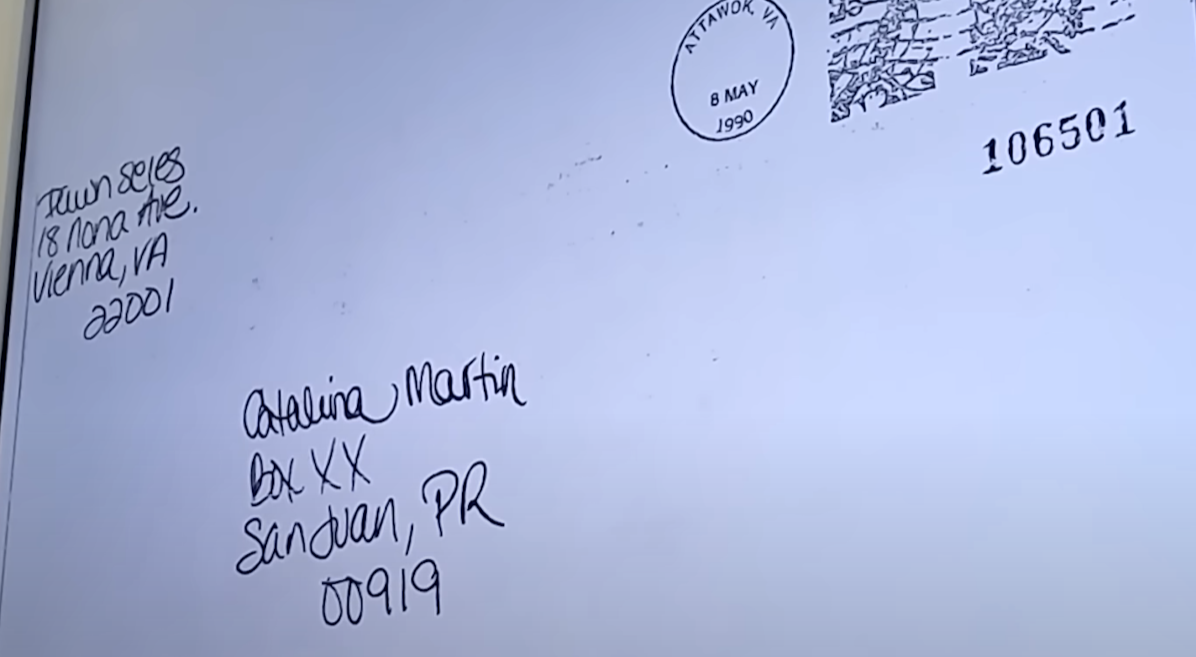 ATTAWOK, VA
8 MAY
1990
106501
Dawn Seles
18 Nona Ave.
Vienna, VA
22001
Catalina Martin
Box XX
San Juan, PR
00919